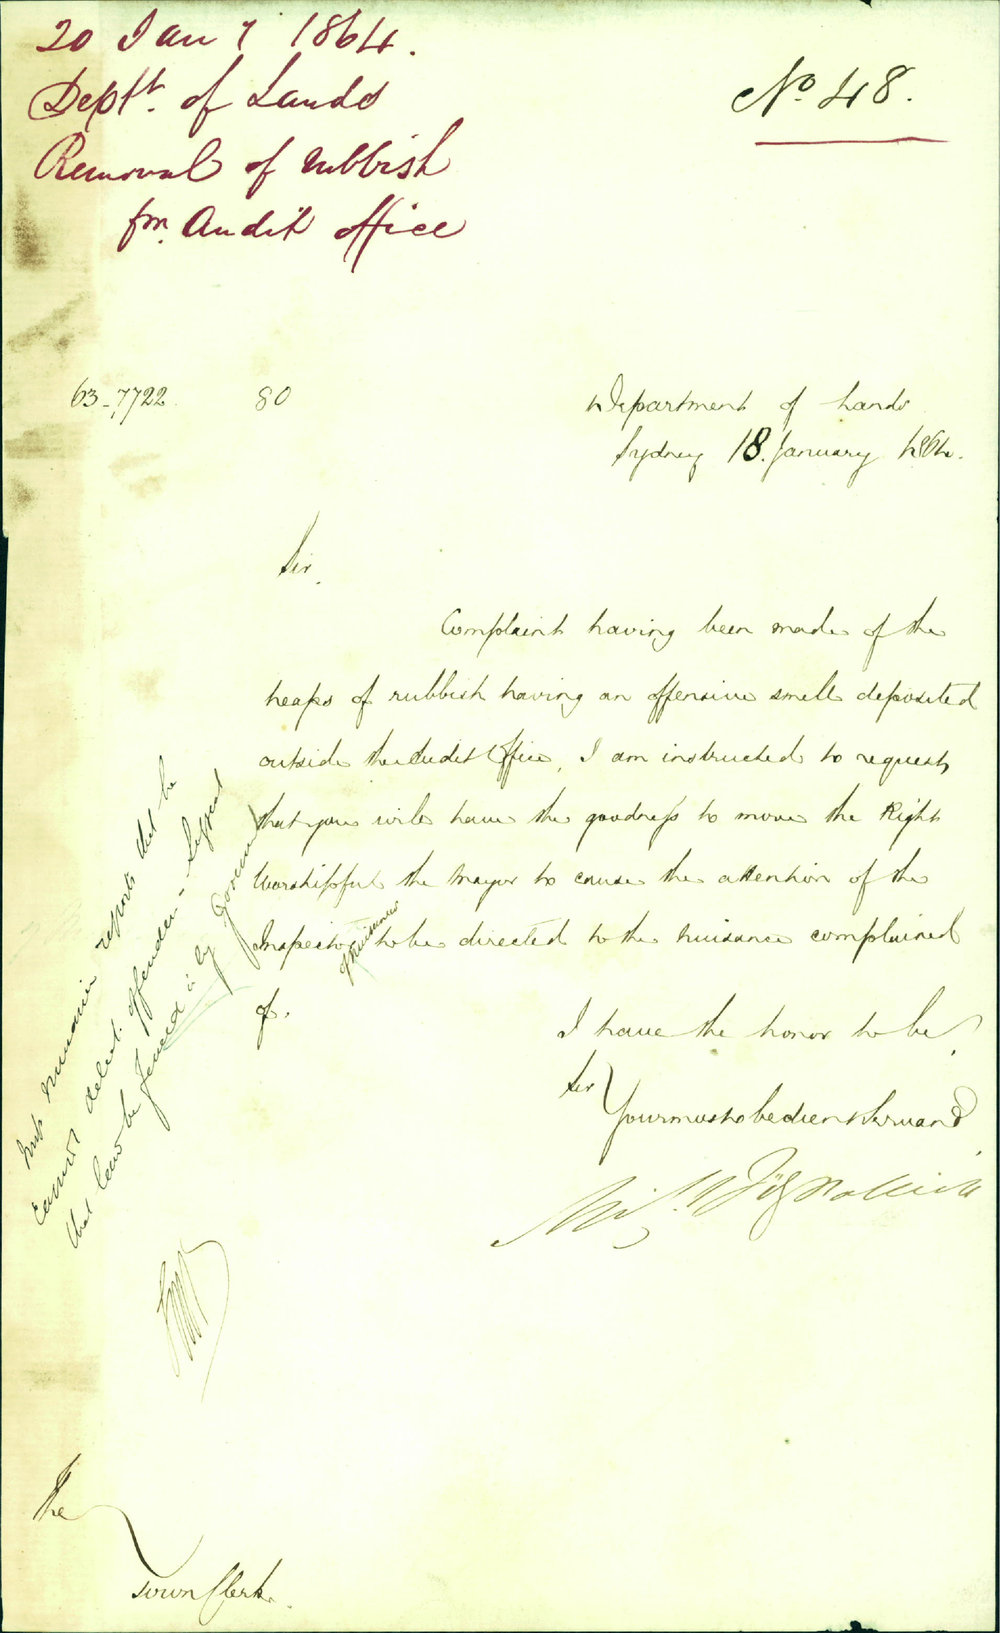 20 Jany 1864.
Deptt. of Lands
Removal of rubbish
fm. Audit office
No 48.
63-7722. 80
Department of Lands
Sydney 18. January 1864.
Sir,
Complaint having been made of the
heaps of rubbish having an offensive smell deposited
outside the Audit Office, I am instructed to request,
that you will have the goodness to move the Right
Worshipful the Mayor to cause the attention of the
Inspector of Nuisances to be directed to the nuisance complained
of.
I have the honor to be,
Sir
Your most obedient Servant
Fitzpatrick
Nuisances reports that he
cannot detect offenders - suggest
that land be fenced in by Government
The
Town Clerk.